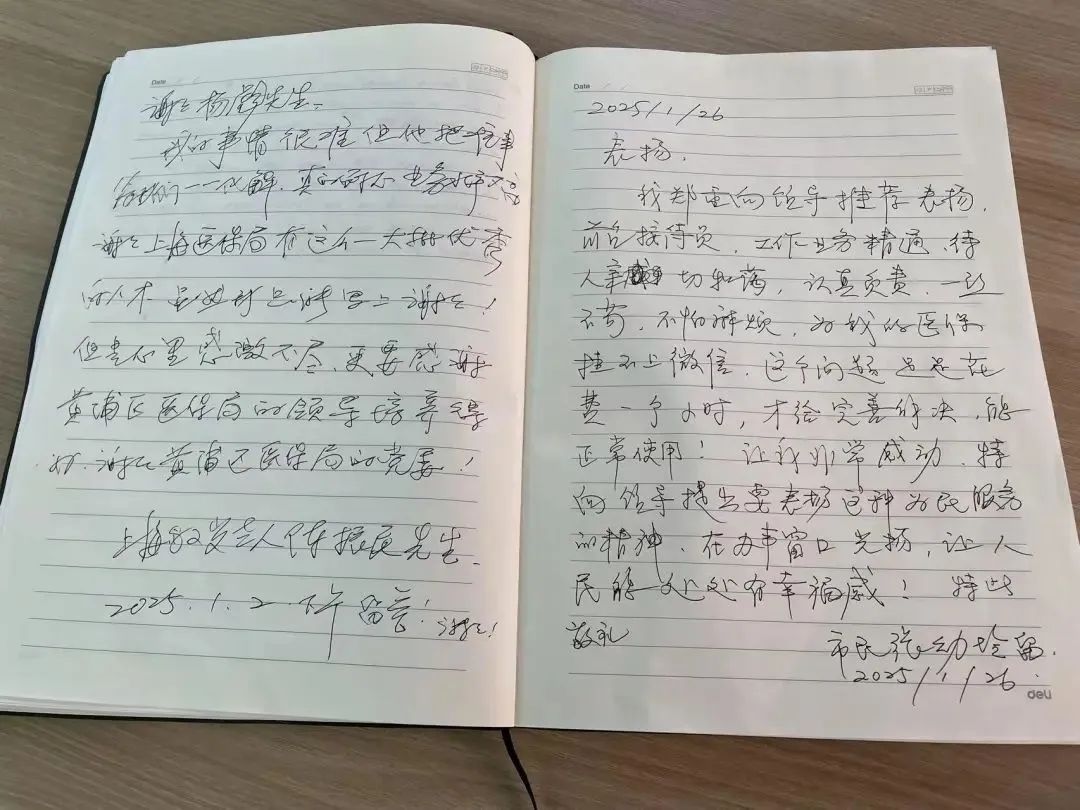 Date
谢谢杨 先生、
我的事情很难但他把难事
为我们一一化解、真 业务水平
谢谢上海医保局有这么一大批优秀
的人才 谢谢！
但是心里感激不尽、更要感谢
黄浦区医保局的领导培养得
好、谢谢黄浦区医保局的党委！
上海 老人 先生、
2025.1.2.下午留言！谢谢！
Date
2025/1/26
表扬、
我郑重向领导推荐表扬、
前台接待员、工作业务精通、待
人亲切和蔼、认真负责、一丝
不苟、不怕麻烦、为我的医保
挂不上微信、这个问题 足足花
费一个小时，才给完善解决、能
正常使用！让我非常感动、特
向领导提出要表扬这种为民服务
的精神、在办事窗口发扬，让人
民能处处有幸福感！特此
敬礼
市民张幼 留.
2025/1/26
deli